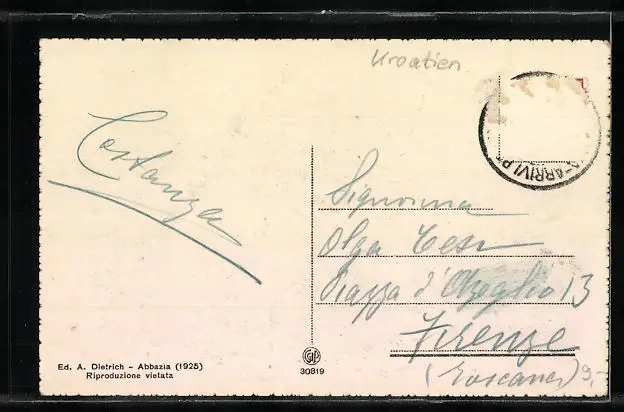 Kroatien
ARRIVI P
Costanza
Signorina
Olga Cesi
Piazza d'Azeglio 13
Firenze
(Toscana) 9,-
Ed. A. Dietrich - Abbazia (1925)
Riproduzione vietata
30819